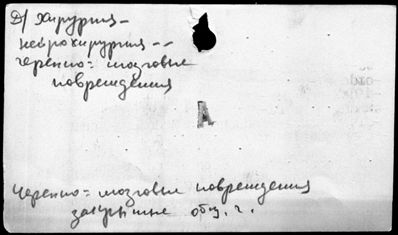 д/ Хирургия -
нейрохирургия --
черепно = мозговые
повреждения
А
Черепно = мозговые повреждения
закрытые общ. г.